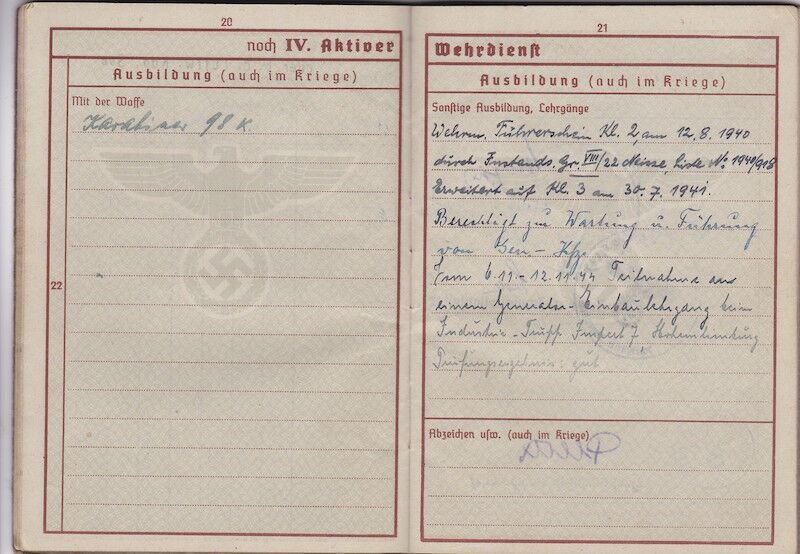 20
noch IV. Aktiver
Ausbildung (auch im Kriege)
Mit der Waffe
Karabiner 98 K
22
21
Wehrdienst
Ausbildung (auch im Kriege)
Sonstige Ausbildung, Lehrgänge
Wehrm. Führerschein Kl. 2, am 12. 8. 1940
durch Instands. Gr. VIII/22 Neisse, Liste No 1940/918
Erweitert auf Kl. 3 am 30. 7. 1941.
Berechtigt zu Wartung u. Führung
von Gen.-Kfz.
Vom 6.11.-12.11.44 Teilnahme an
einem Generator-Einbaulehrgang beim
Industrie-Trupp 7, Hohenlimburg
Prüfungsergebnis: gut
Abzeichen usw. (auch im Kriege)